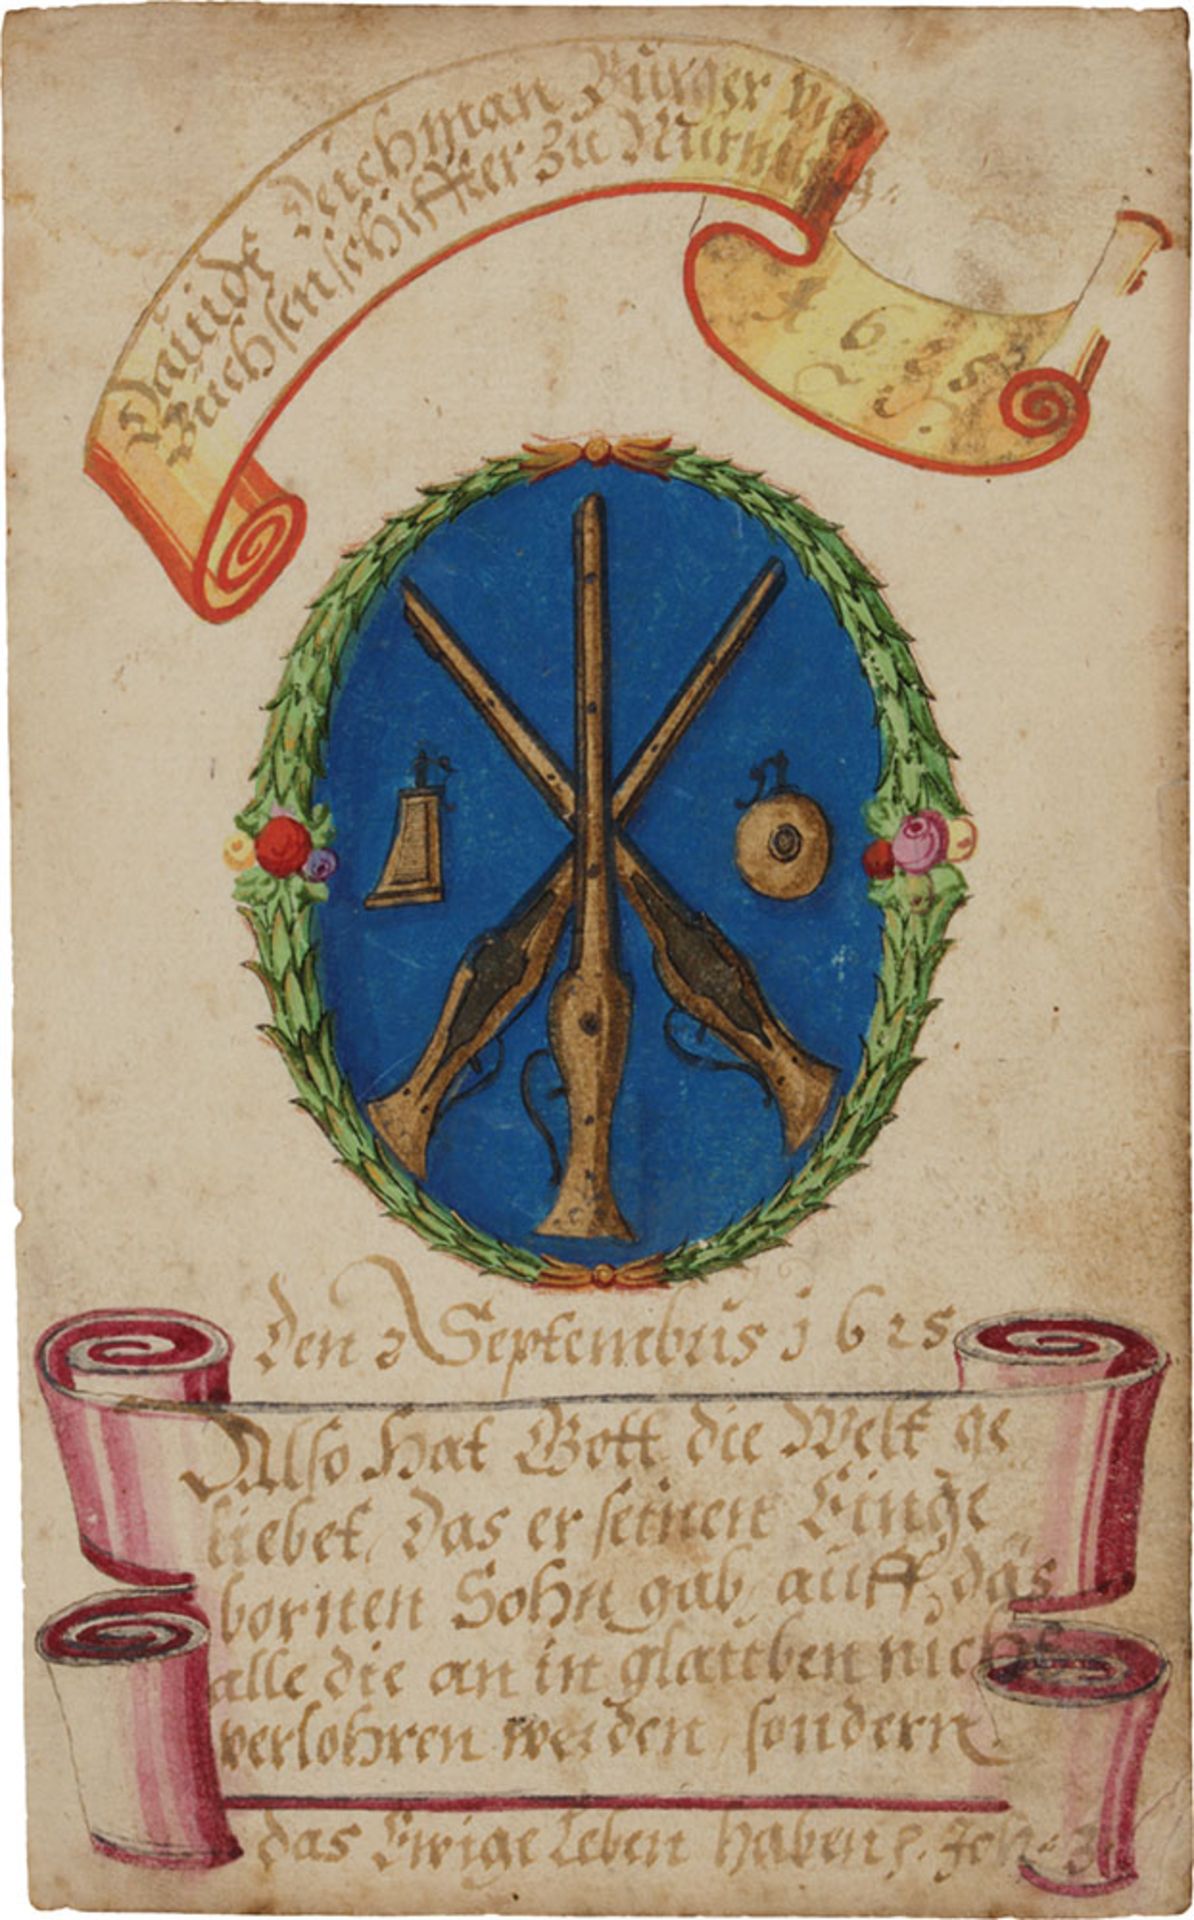 Dauidt Deichman Bürger vnd
Büchsenschiffter Zu Nürnberg.
A 6
den 2 Septembris 1625
Also hat Gott die Welt ge
liebet, das er seinen Einge
bornen Sohn gab, auff, das
alle die an in glauben nicht
verlohren werden, sondern
das Ewige Leben haben, Joh. 3.